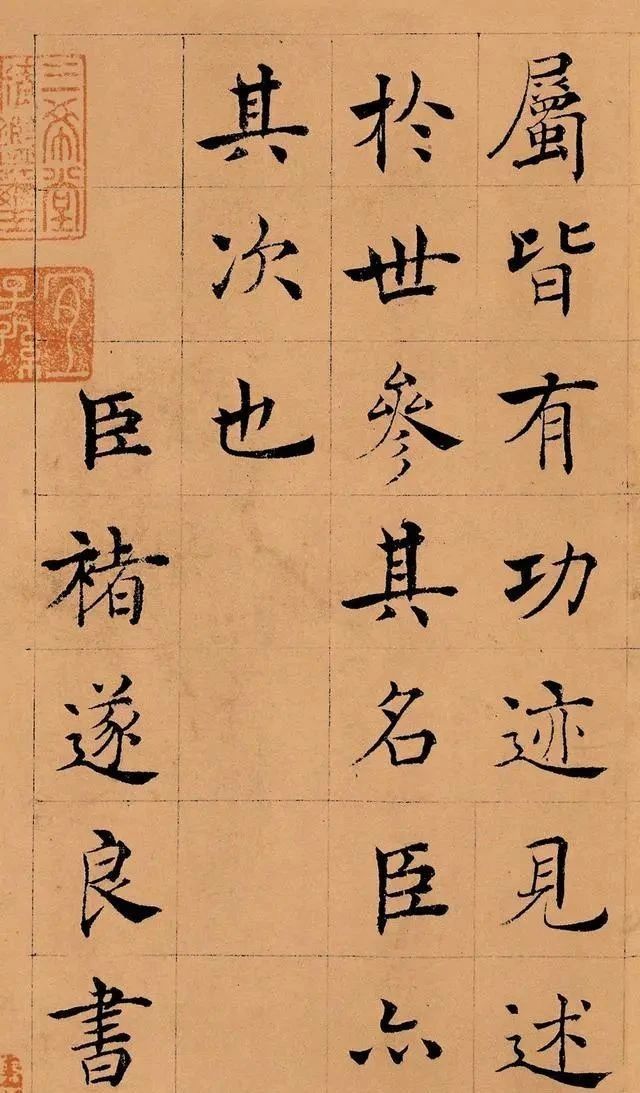 屬皆有功迹見述
於世參其名臣亦
其次也
臣褚遂良書
三希堂